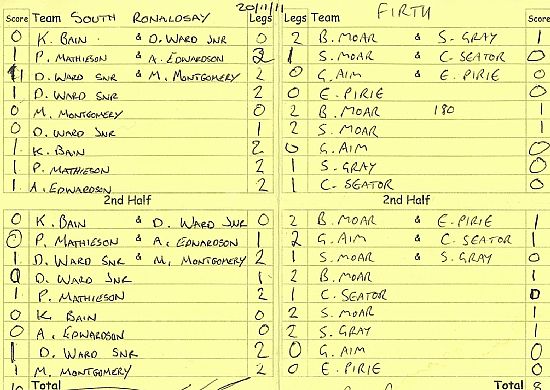 Score Team SOUTH RONALDSAY 20/11/11 Legs Legs Team FIRTH Score
0 K. BAIN & D. WARD JNR 0 2 B. MOAR & S. GRAY 1
1 P. MATHIESON & A. EDWARDSON 2 1 S. MOAR & C. SEATOR 0
1 D. WARD SNR & M. MONTGOMERY 2 0 G. AIM & E. PIRIE 0
1 D. WARD SNR 2 0 E. PIRIE 0
0 M. MONTGOMERY 0 2 B. MOAR 180 1
0 D. WARD JNR 1 2 S. MOAR 1
1 K. BAIN 2 0 G. AIM 0
1 P. MATHIESON 2 1 S. GRAY 0
1 A. EDWARDSON 2 1 C. SEATOR 0
2nd Half 2nd Half
0 K. BAIN & D. WARD JNR 0 2 B. MOAR & E. PIRIE 1
0 P. MATHIESON & A. EDWARDSON 1 2 G. AIM & C. SEATOR 1
1 D. WARD SNR & M. MONTGOMERY 2 1 S. MOAR & S. GRAY 0
0 D. WARD JNR 1 2 B. MOAR 1
1 P. MATHIESON 2 1 C. SEATOR 0
0 K. BAIN 0 2 S. MOAR 1
0 A. EDWARDSON 0 2 S. GRAY 1
1 D. WARD SNR 2 0 G. AIM 0
1 M. MONTGOMERY 2 0 E. PIRIE 0
Total Total